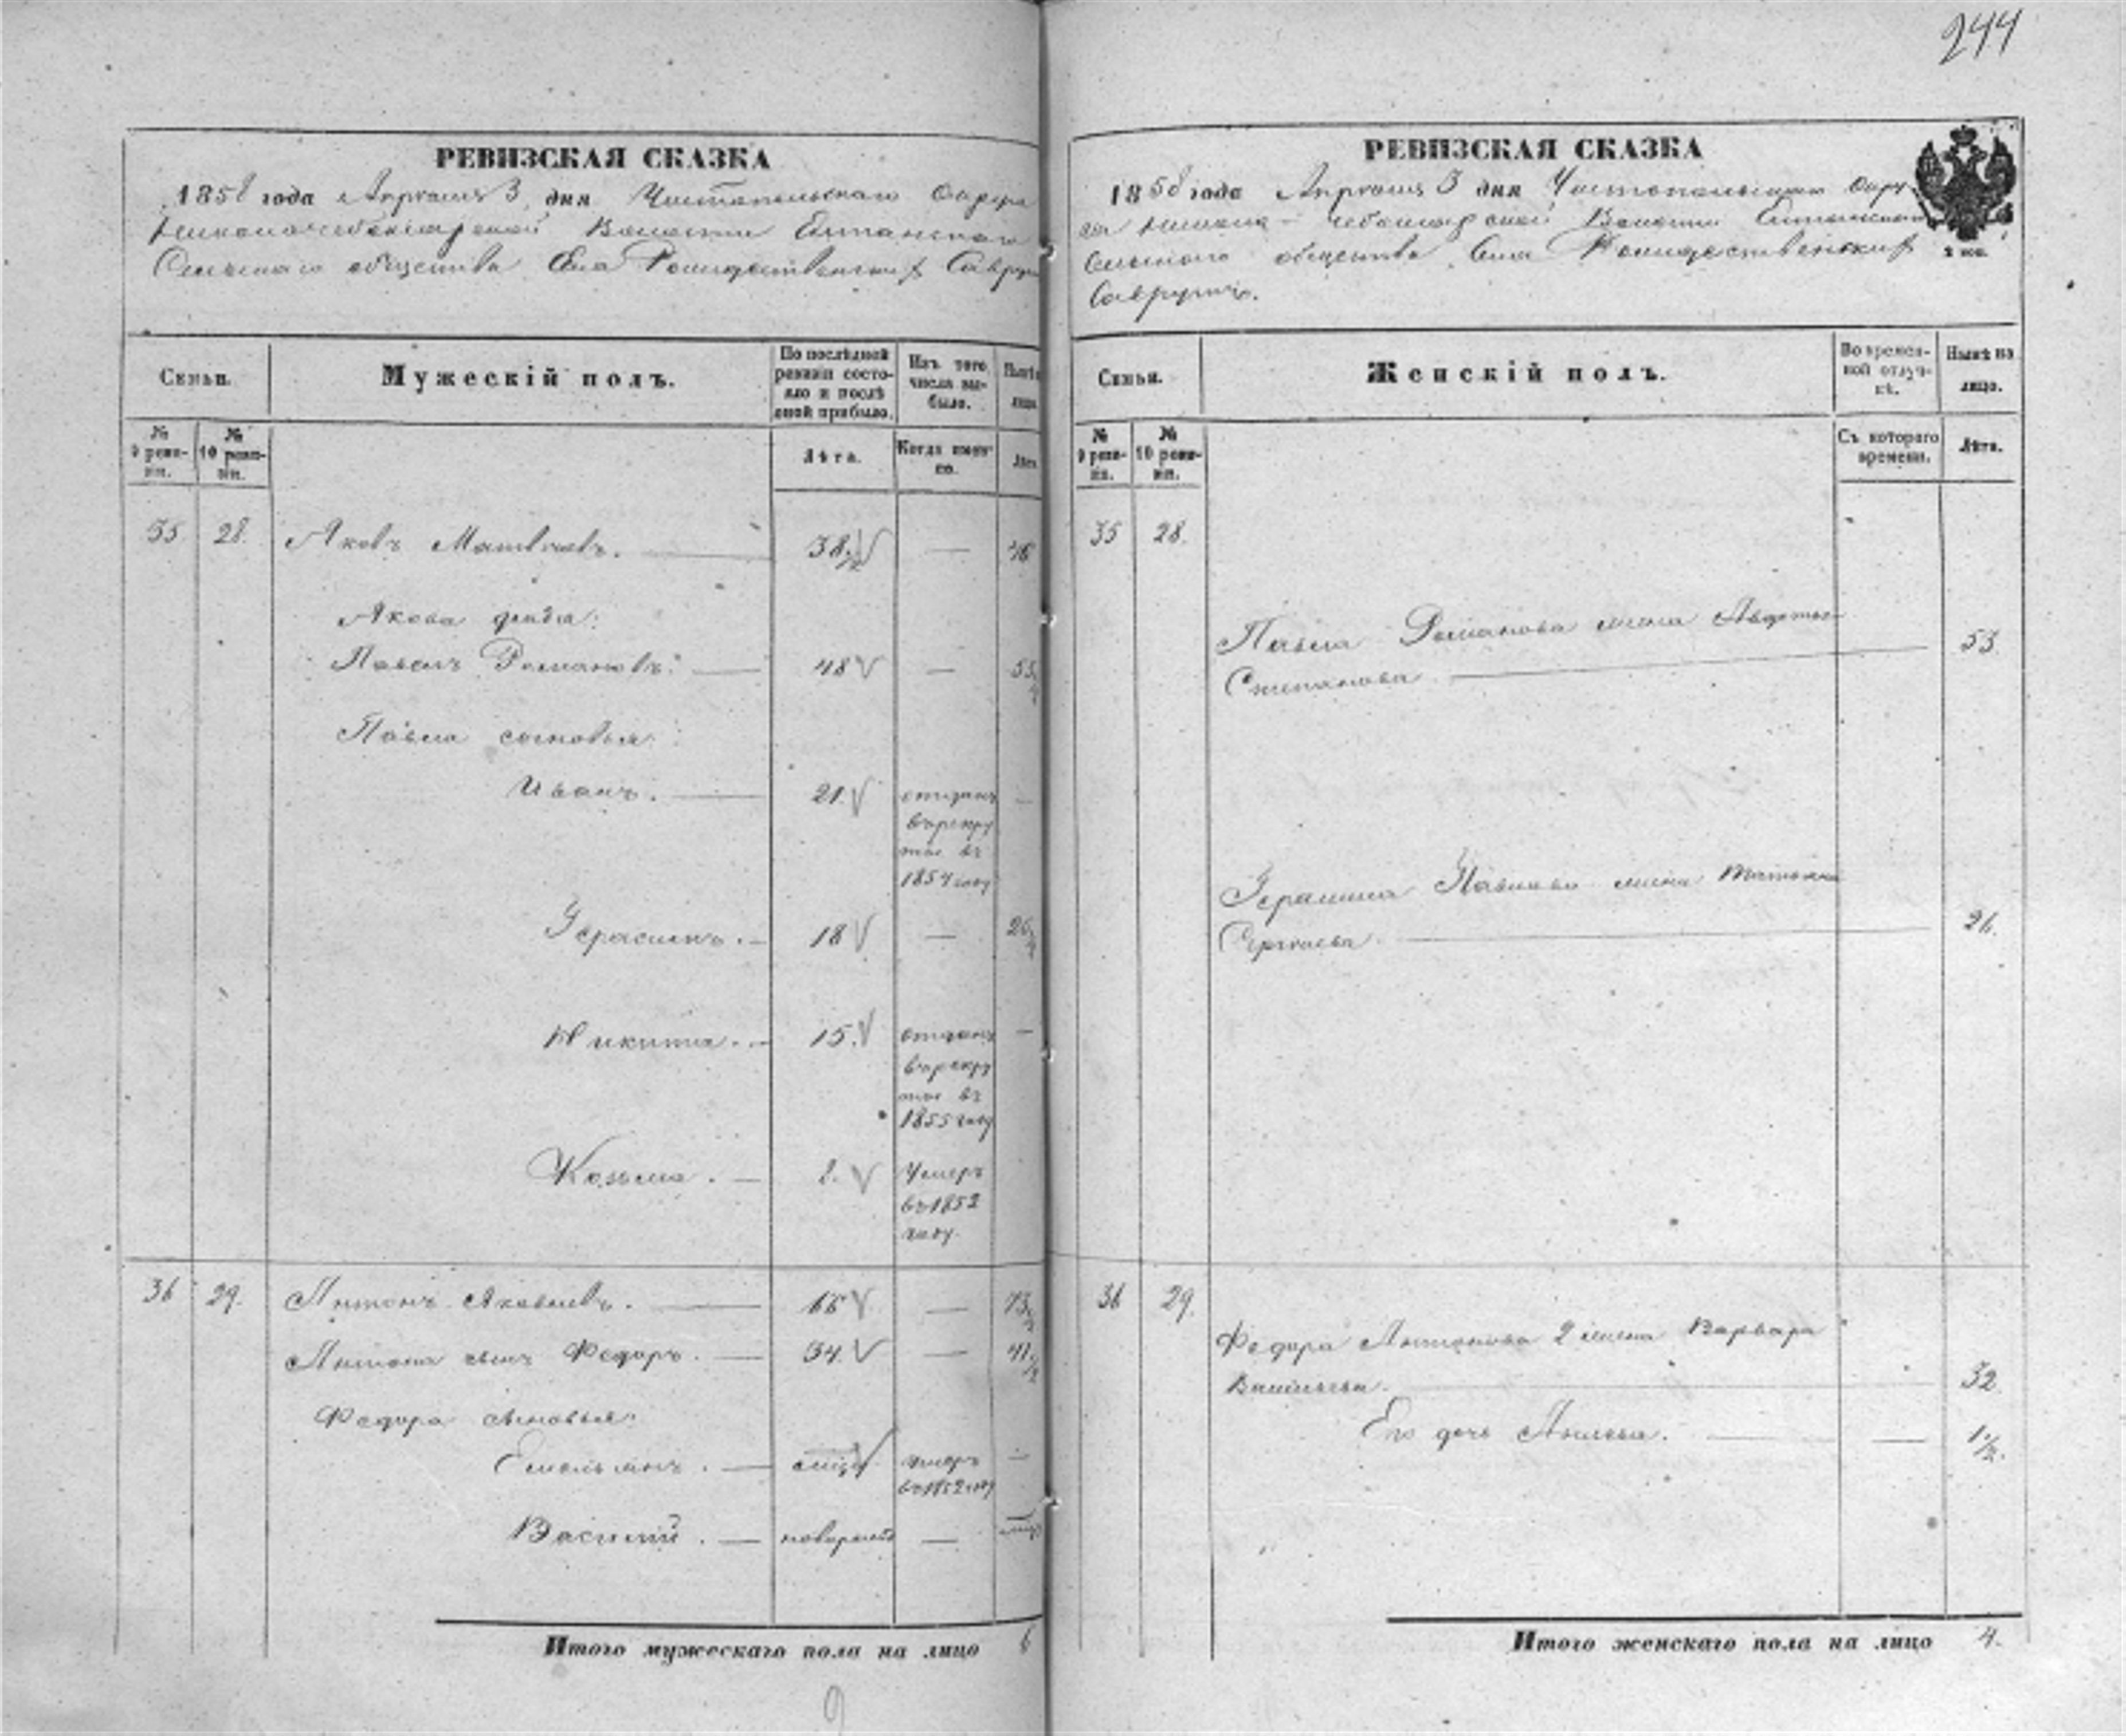 244
РЕВИЗСКАЯ СКАЗКА
1858 года Апреля 3 дня Чистопольскаго Округа
Волости
Сельскаго общества Села Рождественскихъ
Семьи.
Мужескій полъ.
По послѣдней ревизіи состояло и послѣ оной прибыло.
Изъ того числа выбыло.
Нынѣ на лицо
№ 9 ревизіи.
№ 10 ревизіи.
Лѣта.
Когда именно.
Лѣта
35 28. Яковъ Матвѣевъ. 38. — 46
Якова дядя:
Павелъ Романовъ: 48 — 55
Павла сыновья:
Иванъ. 21. отданъ —
въ рекру
ты въ
1854 году
Герасимъ. 18 — 26
Никита. 15. отданъ —
въ рекру
ты въ
1855 году
Козьма. 2. Умеръ
въ 1852
году.
36 29. Антонъ Яковлевъ. 66 — 73
Антона сынъ Федоръ. 34. — 41
Федора сыновья:
Емельянъ. умеръ —
въ 1852 году
Василий. новорожд —
Итого мужескаго пола на лицо 6
9
РЕВИЗСКАЯ СКАЗКА
1858 года Апреля 3 дня Чистопольскаго Окру
га Волости
Сельскаго общества Села Рождественскихъ
2 коп.
Семьи.
Женскій полъ.
Во временной отлучкѣ.
Нынѣ на лицо.
№ 9 ревизіи.
№ 10 ревизіи.
Съ котораго времени.
Лѣта.
35 28.
Павла Романова жена Авдотья
Степанова 53.
Герасима Павлова жена Татьяна
Сергѣева. 26.
36 29.
Федора Антонова 2 жена Варвара
Васильева. 32
Его дочь — 1/2.
Итого женскаго пола на лицо 4.